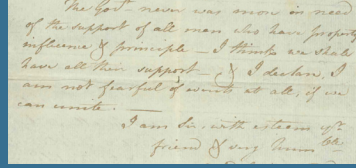 The Govt. never was more in need
of the support of all men who have property
influence & principle — I think we shall
have all their support —, & I declare, I
am not fearful of events at all, if we
can unite. —
I am Sir, with esteem yr.
friend & very hum ble